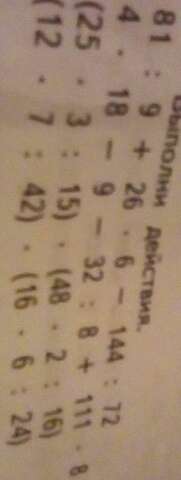 Выполни действия.
81 : 9 + 26 · 6 − 144 : 72
4 · 18 − 9 − 32 : 8 + 111 · 8
(25 · 3 : 15) · (48 · 2 : 16)
(12 · 7 : 42) · (16 · 6 : 24)